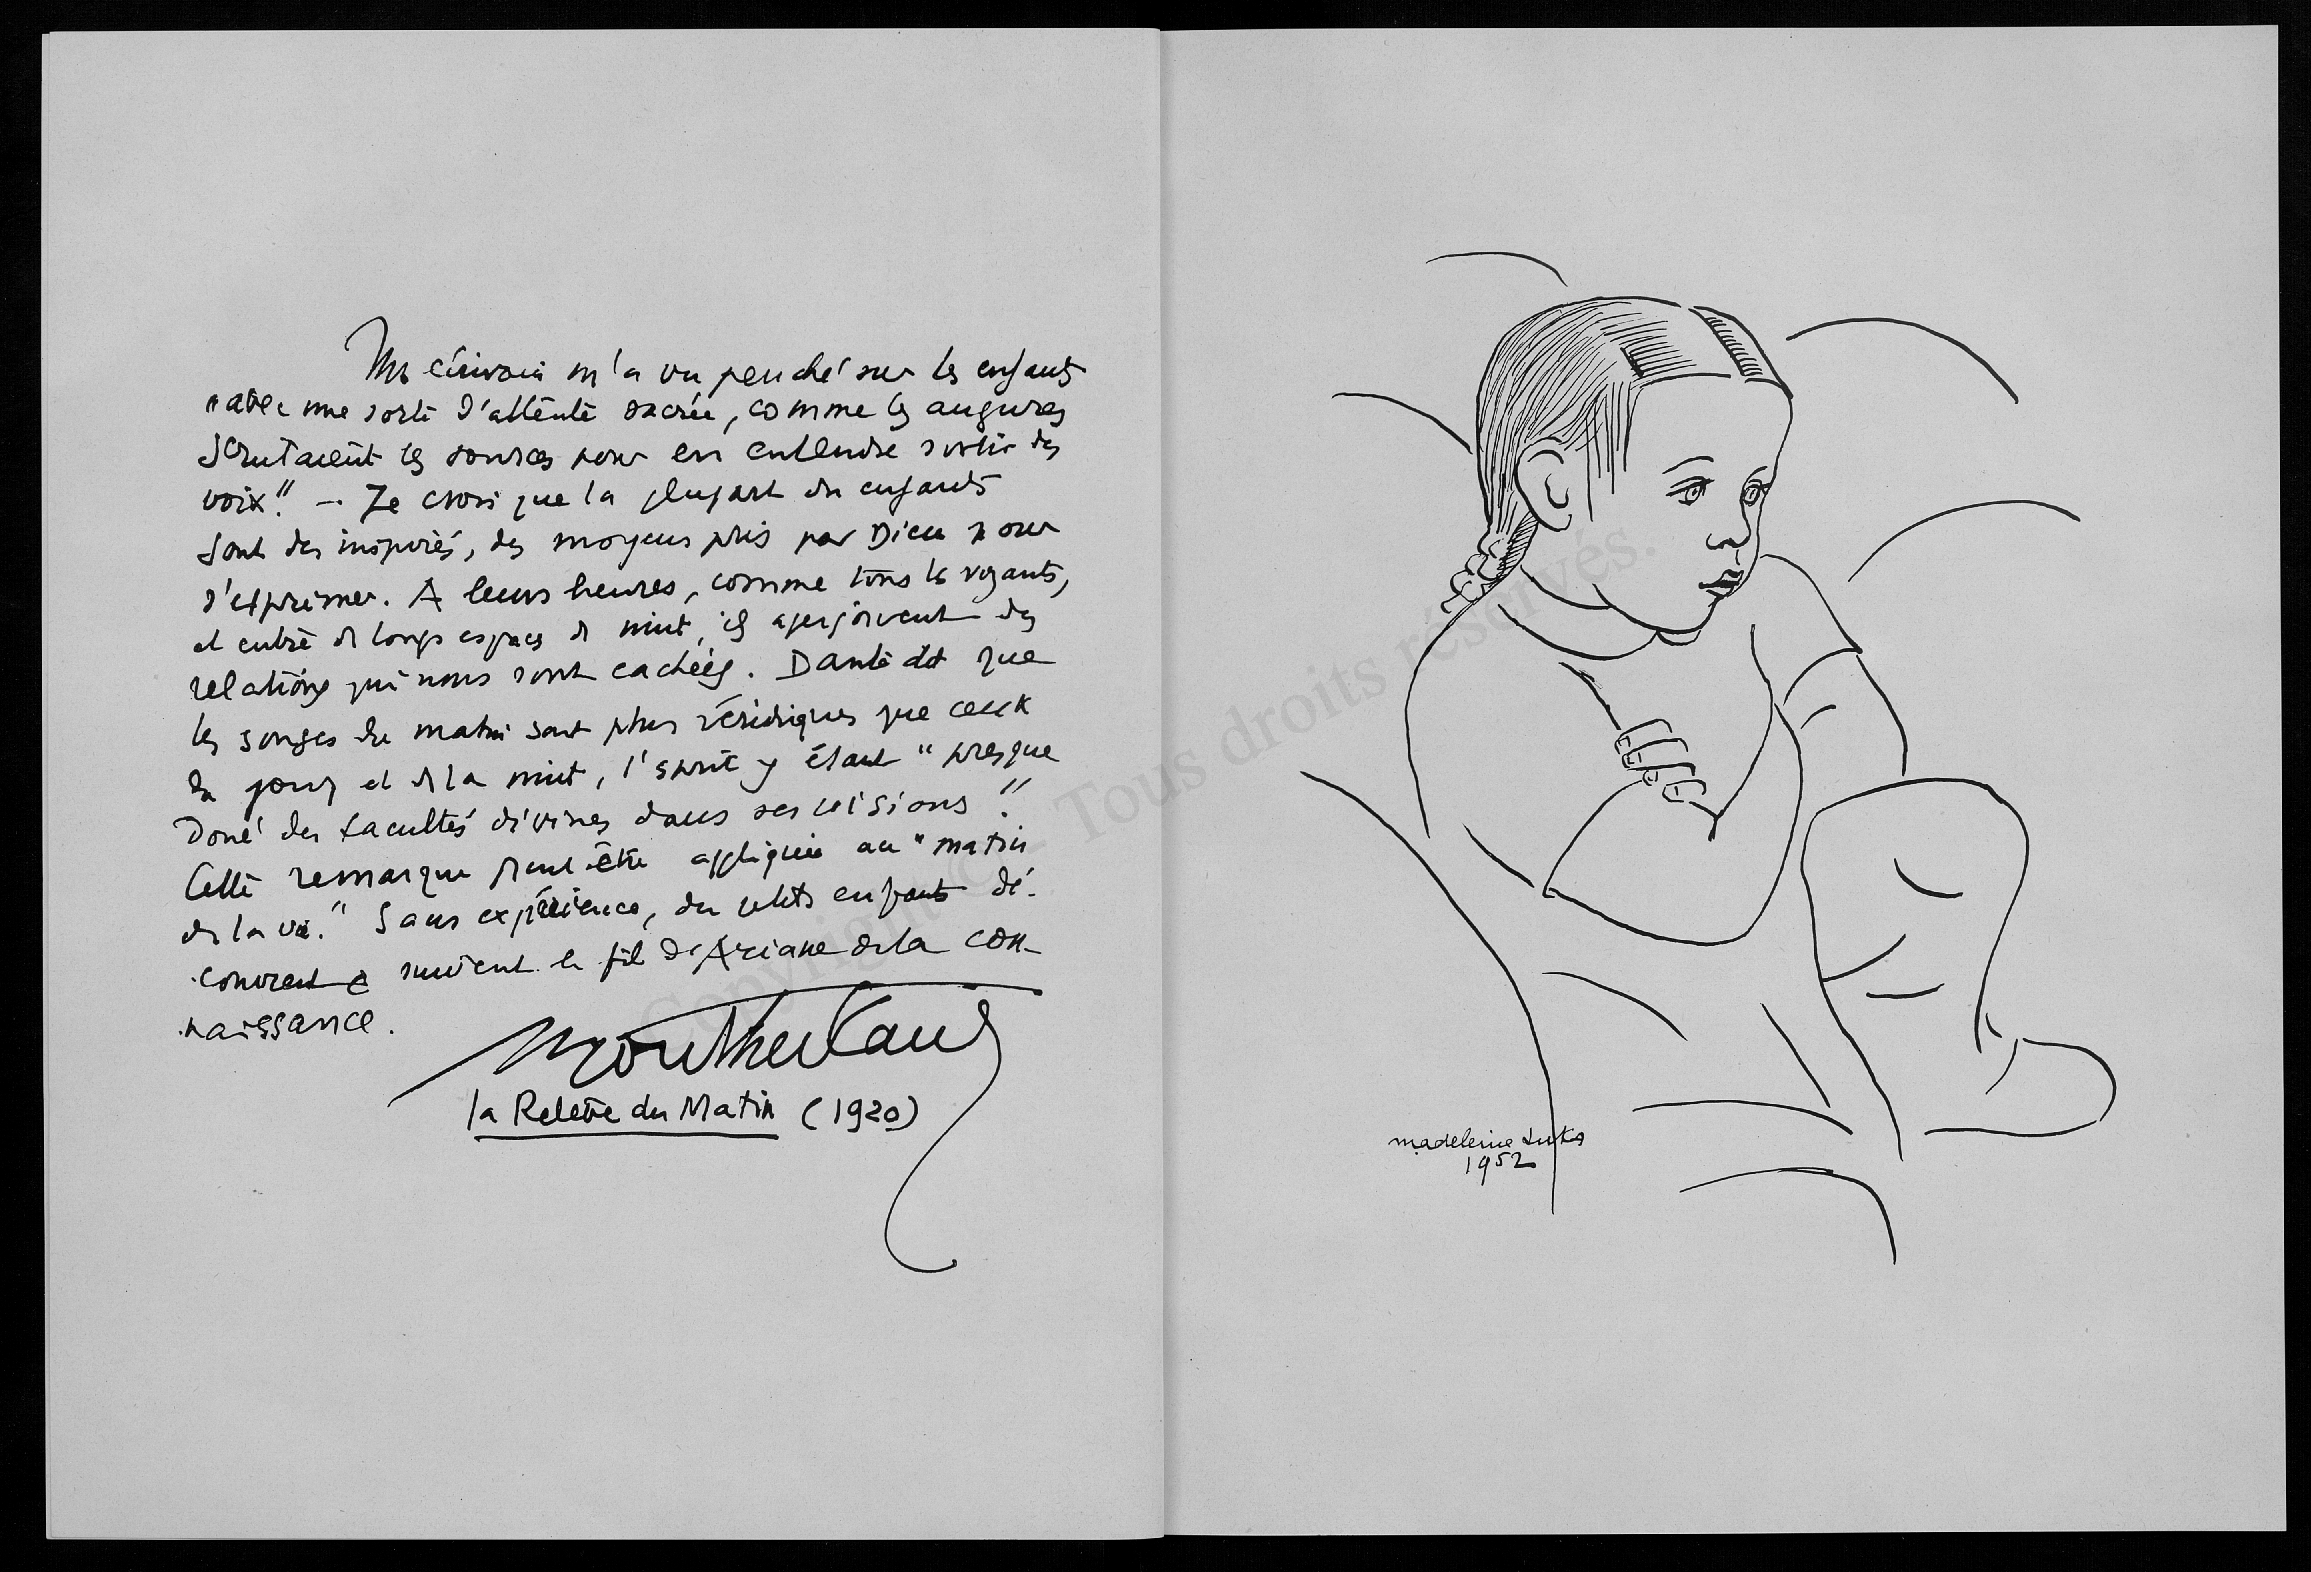 Un écrivain m'a vu penché sur les enfants
"avec une sorte d'attente sacrée, comme les augures
scrutaient les sources pour en entendre sortir des
voix". — Je crois que la plupart des enfants
sont des inspirés, des moyens pris par Dieu pour
s'exprimer. A leurs heures, comme tous les voyants,
et entre de longs espaces de nuit, ils aperçoivent des
relations qui nous sont cachées. Dante dit que
les songes du matin sont plus véridiques que ceux
du jour et de la nuit, l'esprit y étant "presque
doué des facultés divines dans ses visions".
Cette remarque peut être appliquée au "matin
de la vie." Sans expérience, des petits enfants dé-
couvrent et suivent le fil d'Ariane de la con-
naissance.
Montherlant
la Relève du Matin (1920)
madeleine Luka
1952
Copyright © - Tous droits réservés.